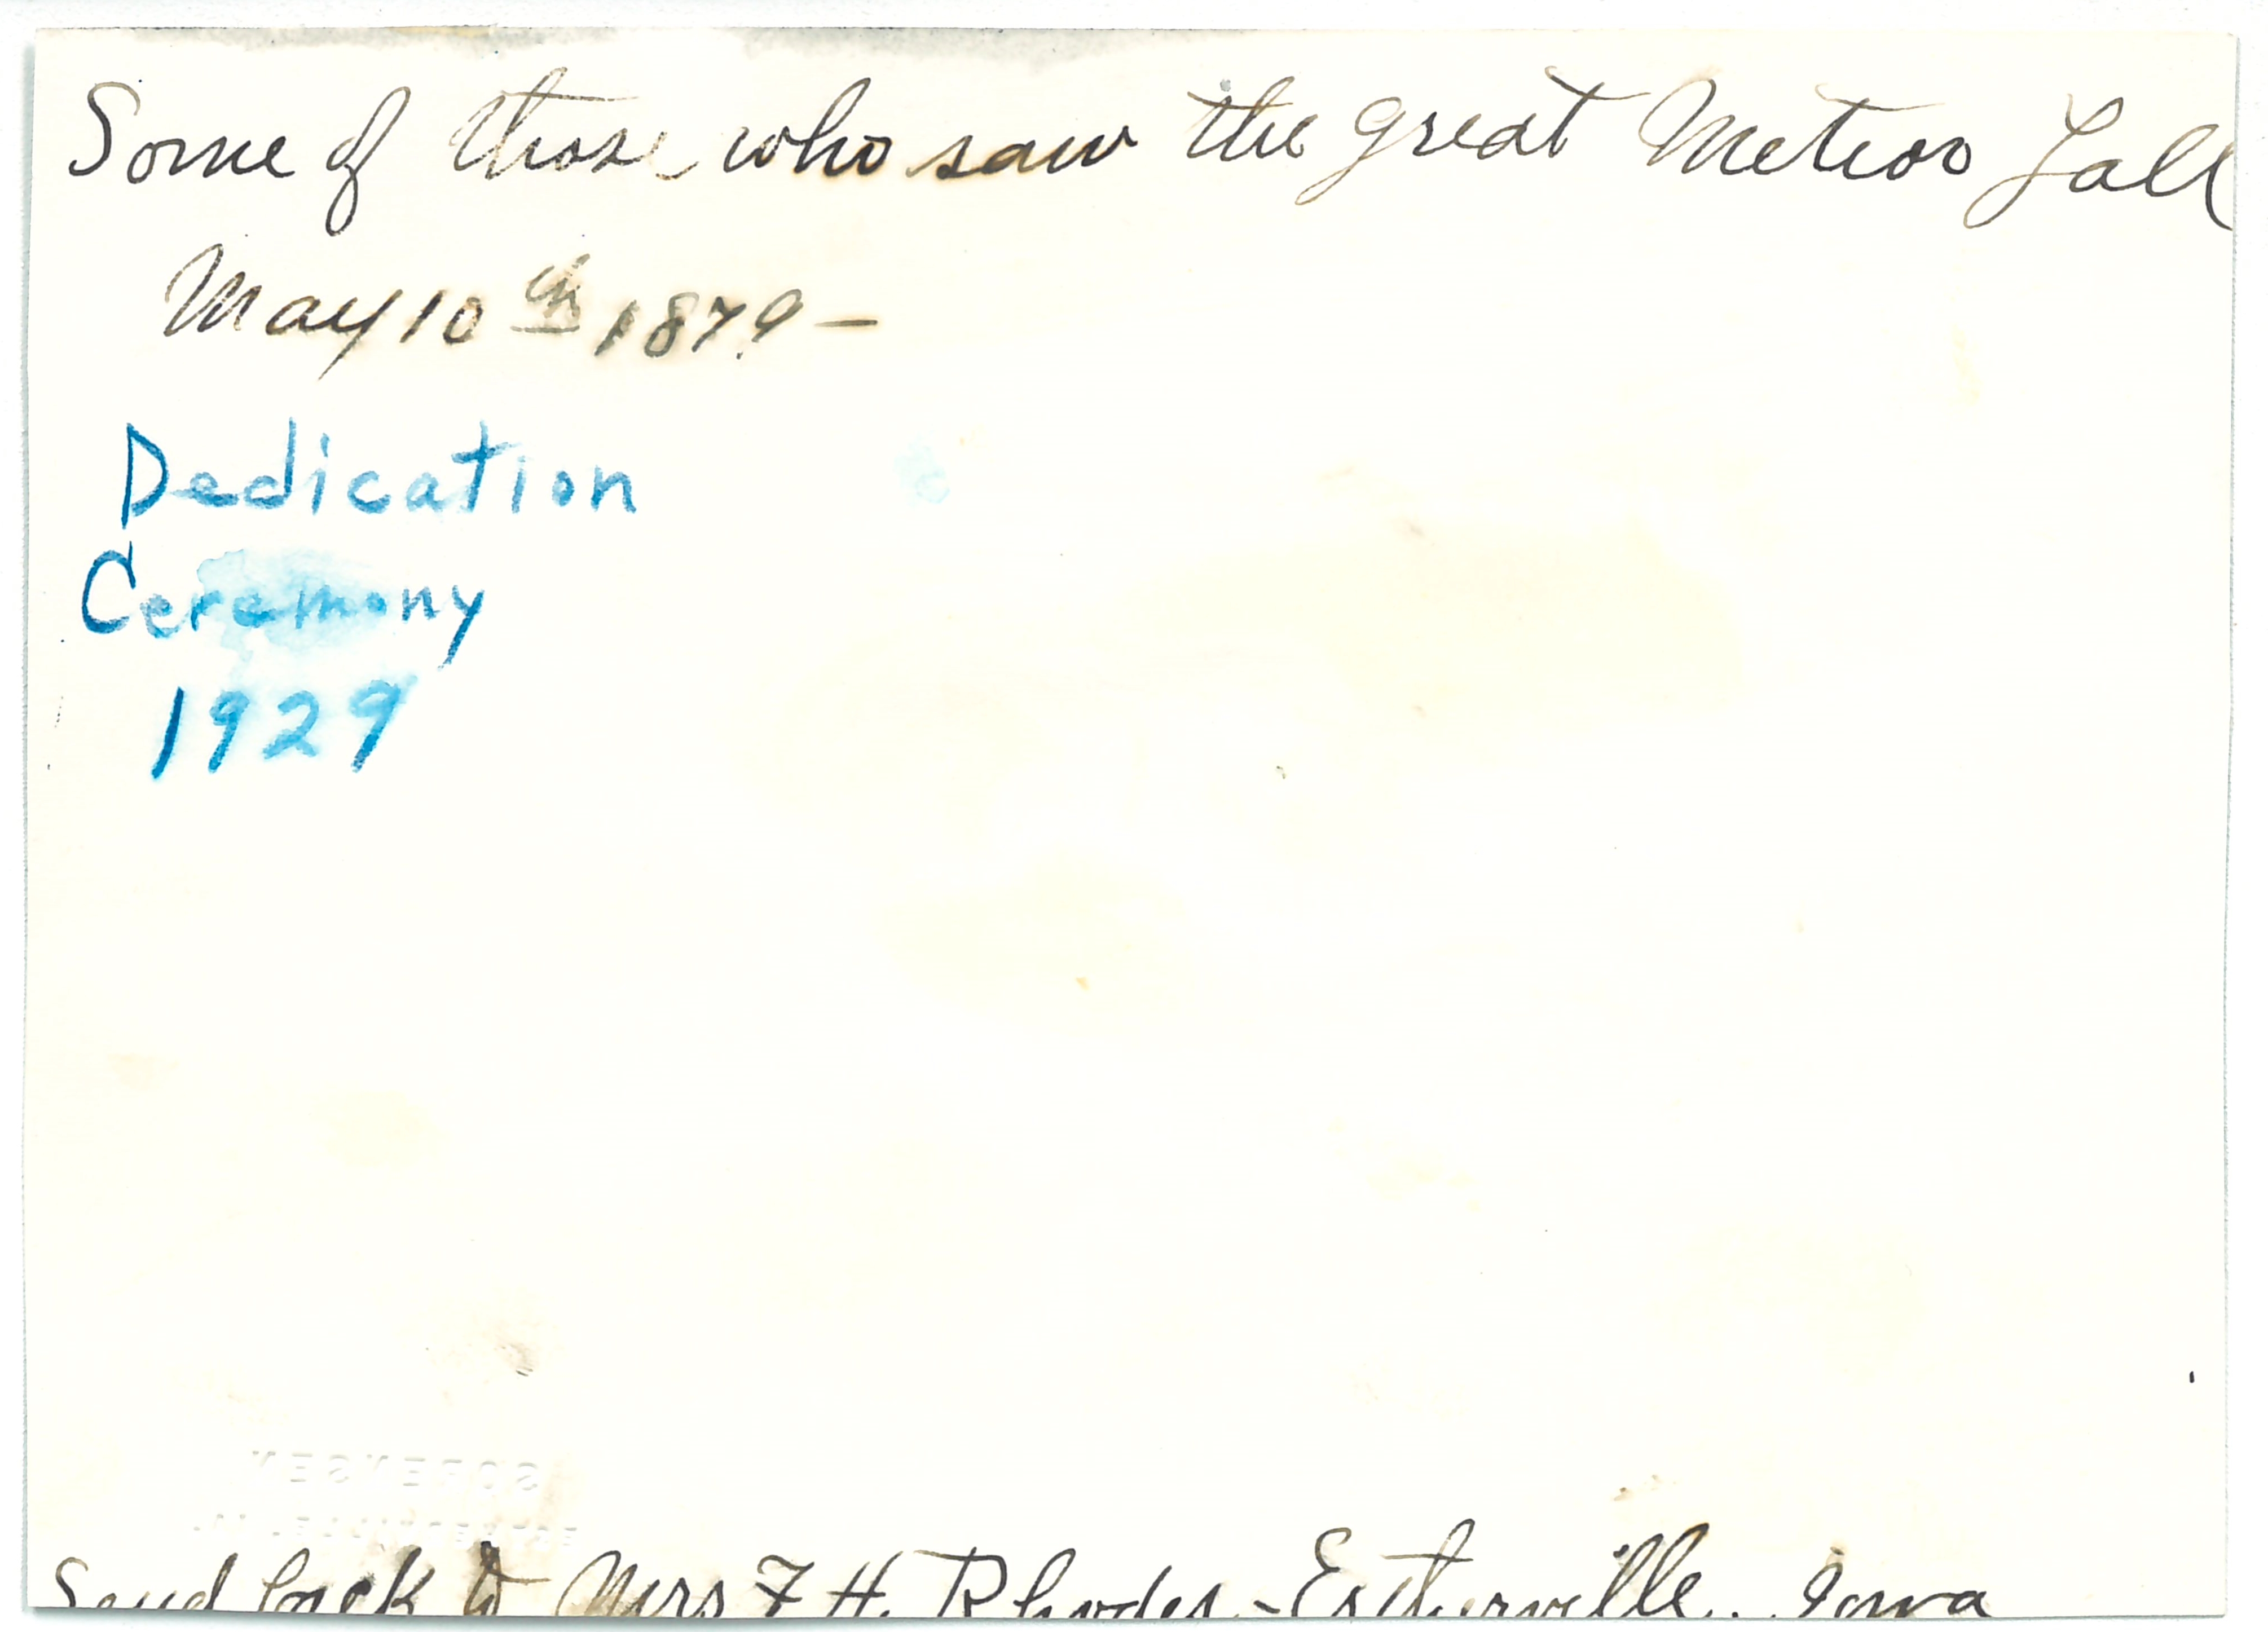 Some of those who saw the great Meteor fall
May 10th 1879 —
Dedication
Ceremony
1929
SORENSEN
Send back to Mrs F H. Rhodes - Estherville. Iowa